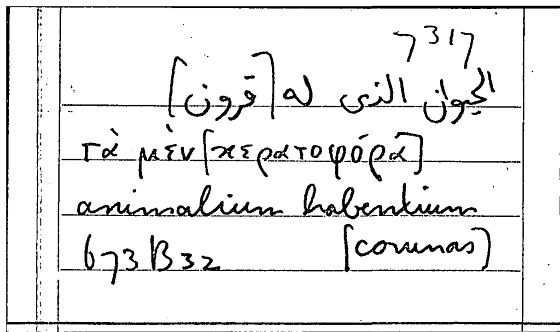 7317
الحيوان الذى له [قرون]
τὰ μὲν [κερατοφόρα]
animalium habentium
673B32 [cornuas]